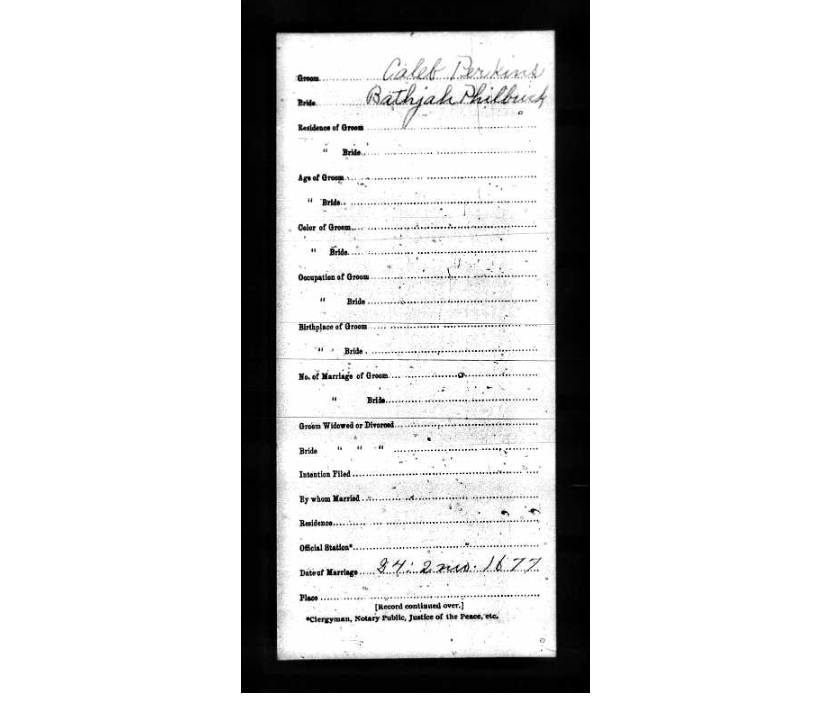 Groom Caleb Perkins
Bride Bathjah Philbrick
Residence of Groom
" Bride
Age of Groom
" Bride
Color of Groom
" Bride
Occupation of Groom
" Bride
Birthplace of Groom
" Bride
No. of Marriage of Groom
" Bride
Groom Widowed or Divorced
Bride " " "
Intention Filed
By whom Married
Residence
Official Station*
Date of Marriage 24: 2 mo. 1677
Place
[Record continued over.]
*Clergyman, Notary Public, Justice of the Peace, etc.